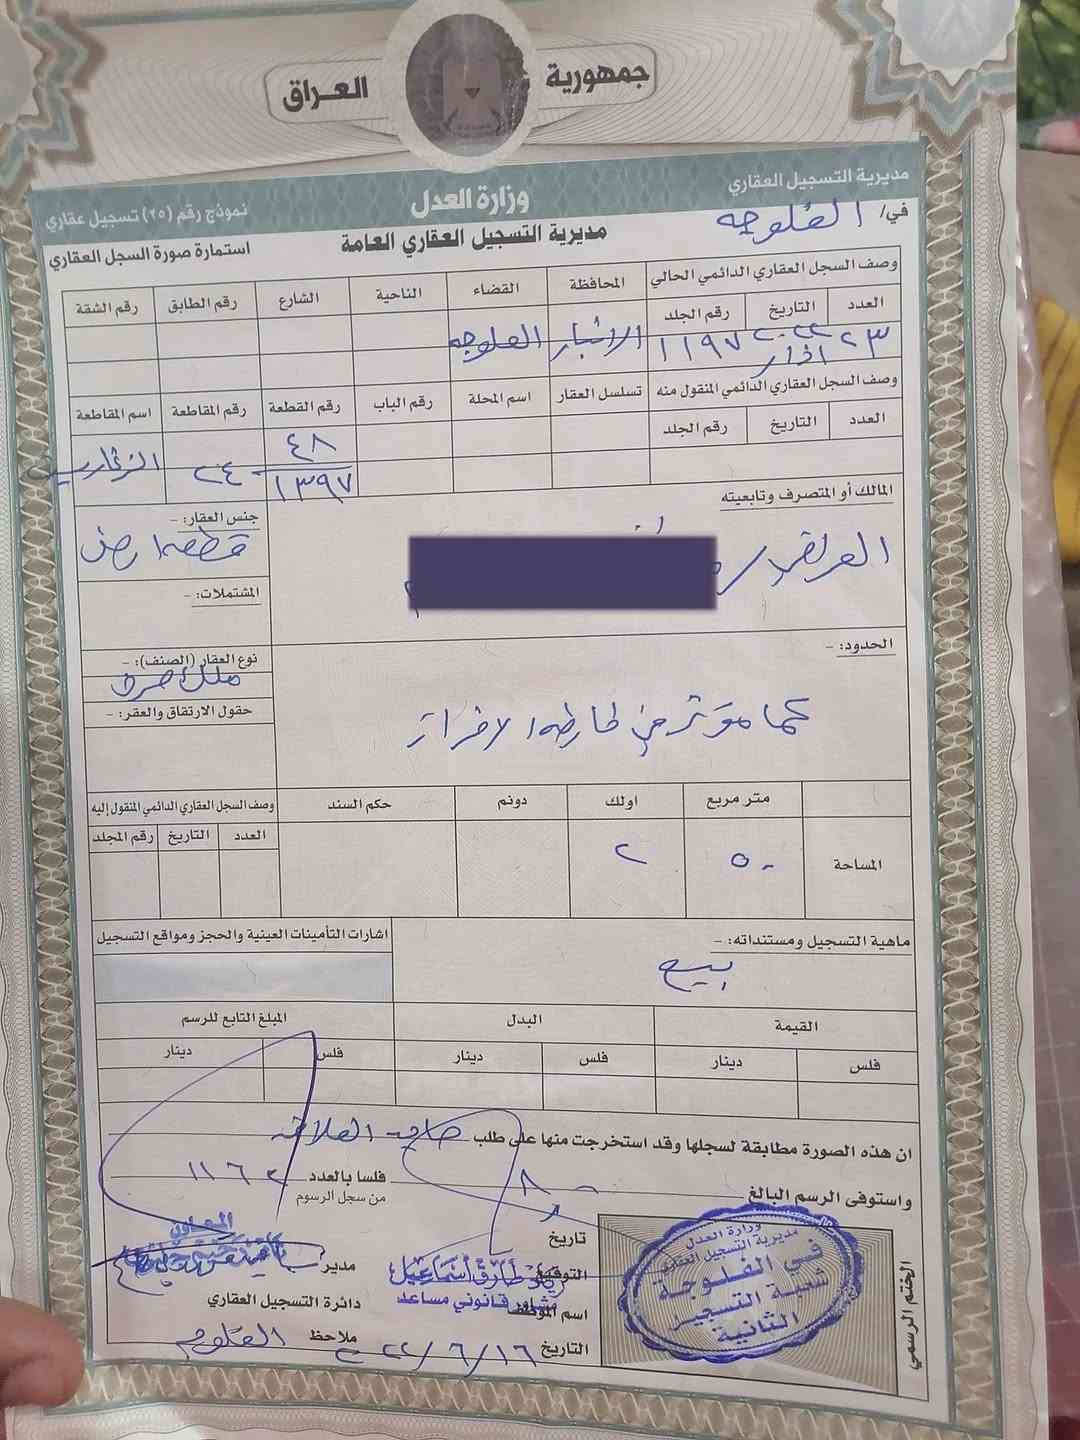 جمهورية العراق
مديرية التسجيل العقاري
وزارة العدل
نموذج رقم (٢٥) تسجيل عقاري
في/ الفلوجه
مديرية التسجيل العقاري العامة
استمارة صورة السجل العقاري
وصف السجل العقاري الدائمي الحالي
المحافظة القضاء الناحية الشارع رقم الطابق رقم الشقة
العدد التاريخ رقم الجلد
٢٣ اذار ٢٠٢٢ ١١٩٧ الانبار الفلوجه
وصف السجل العقاري الدائمي المنقول منه
تسلسل العقار اسم المحلة رقم الباب رقم القطعة رقم المقاطعة اسم المقاطعة
العدد التاريخ رقم الجلد
٤٨
١٣٩٧
٢٤
المالك أو المتصرف وتابعيته
جنس العقار: -
قطعه ارض
المشتملات: -
الحدود: -
نوع العقار (الصنف): -
ملك صرف
حقول الارتقاق والعقر: -
كما مؤشر في خارطه الافراز
متر مربع اولك دونم حكم السند
وصف السجل العقاري الدائمي المنقول إليه
العدد التاريخ رقم المجلد
المساحة
٥٠ ٢
ماهية التسجيل ومستنداته: -
اشارات التأمينات العينية والحجز ومواقع التسجيل
بيع
القيمة البدل المبلغ التابع للرسم
فلس دينار فلس دينار فلس دينار
ان هذه الصورة مطابقة لسجلها وقد استخرجت منها على طلب صاحب العلاقه
واستوفى الرسم البالغ ٨٠٠٠ فلسا بالعدد ١١٦٢
من سجل الرسوم
تاريخ
المعاون
التوقيع
زياد طارق اسماعيل
مدير
اسم الموظف
مشاور قانوني مساعد
دائرة التسجيل العقاري
التاريخ ٢٠٢٢/٦/١٦
ملاحظ الفلوجه
وزارة العدل
مديرية التسجيل العقاري
في الفلوجة
شعبة التسجيل
الثانية
الختم الرسمي